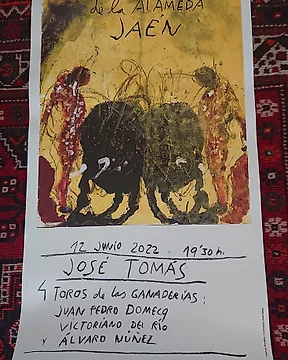 de la ALAMEDA
JAÉN
12 JUNIO 2022. 19'30 h.
JOSÉ TOMÁS
4 TOROS de las GANADERÍAS:
JUAN PEDRO DOMECQ
VICTORIANO DEL RÍO
y ÁLVARO NÚÑEZ